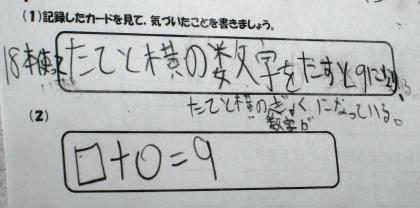 (1)記録したカードを見て、気づいたことを書きましょう。
18本使って
たてと横の数字をたすと9になる。
たてと横の数字がぎゃくになっている。
(2)
□+○=9